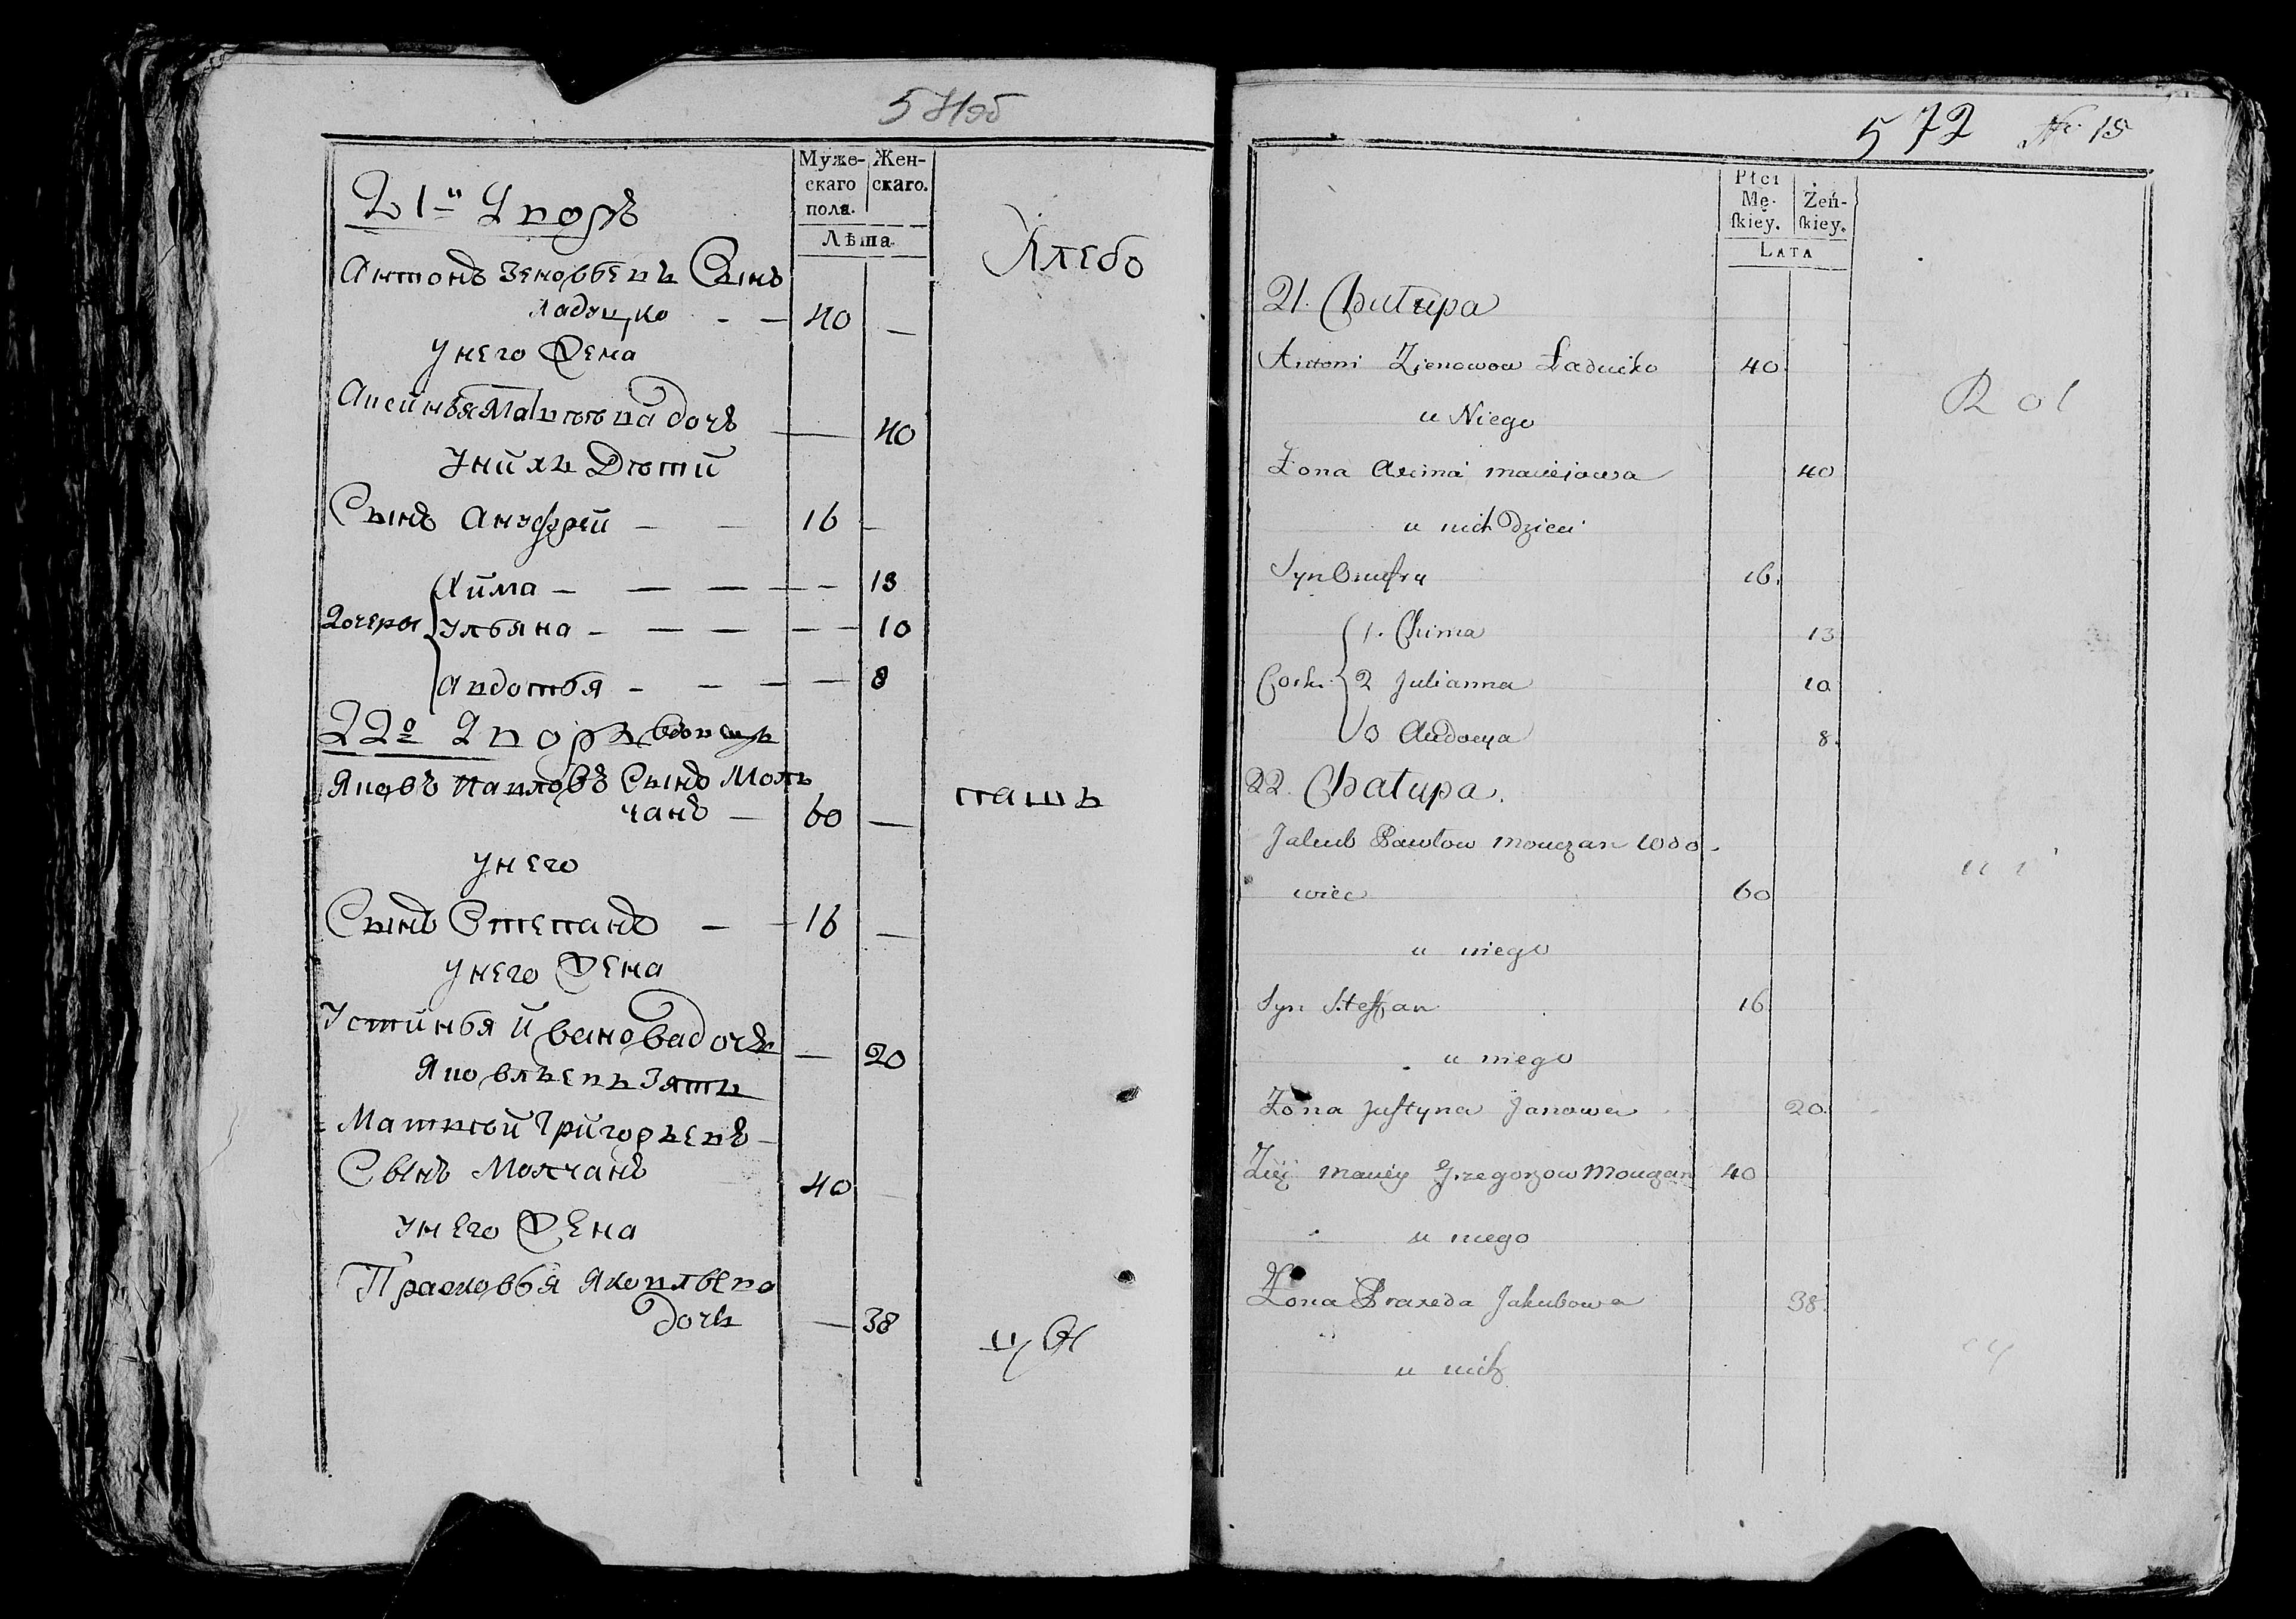 571об
Муже-скаго пола.
Жен-скаго.
Лѣта.
21й Дворъ
Хлебо
Антонъ Зеновьевъ Сынъ
Ладуцко - - 40 —
Унего Жена
Аксинья Матвѣева дочь — 40
Унихъ Дѣти
Сынъ Ануфрей — — 16 —
Хима — — — — 13
Дочеры Ульяна — — — — 10
Авдотья — — — — 8
22й Дворъ вдовецъ
Яковъ Павловъ Сынъ Мол
чанъ — 60 —
пашъ
Унего
Сынъ Степанъ — 16 —
Унего Жена
Устинья Иванова дочь — 20
Яковлевъ Зять
Матвѣй Григорьевъ
Сынъ Молчанъ 40 —
Унего Жена
Прасковья Яковлева
дочь — 38
цы
572 № 15
Płci Mę-ſkiey.
Żeń-ſkiey.
Lata
21. Chatupa
Antoni Zienowow Laducko 40
Rol
u Niego
Żona Axima maciejowa 40
u nich Dzieci
Syn Onufry 16.
1. Chima 13
Corki 2 Julianna 10
3 Audocya 8.
22. Chatupa.
Jakub Pawlow mouczan wdo-
wiec 60
ni
u niego
Syn Steffan 16
u niego
Żona Juſtyna Janowa 20.
Zięć maciey Grzegorzow Mouczan 40
u niego
Żona Praxeda Jakubowa 38.
u nich
cy